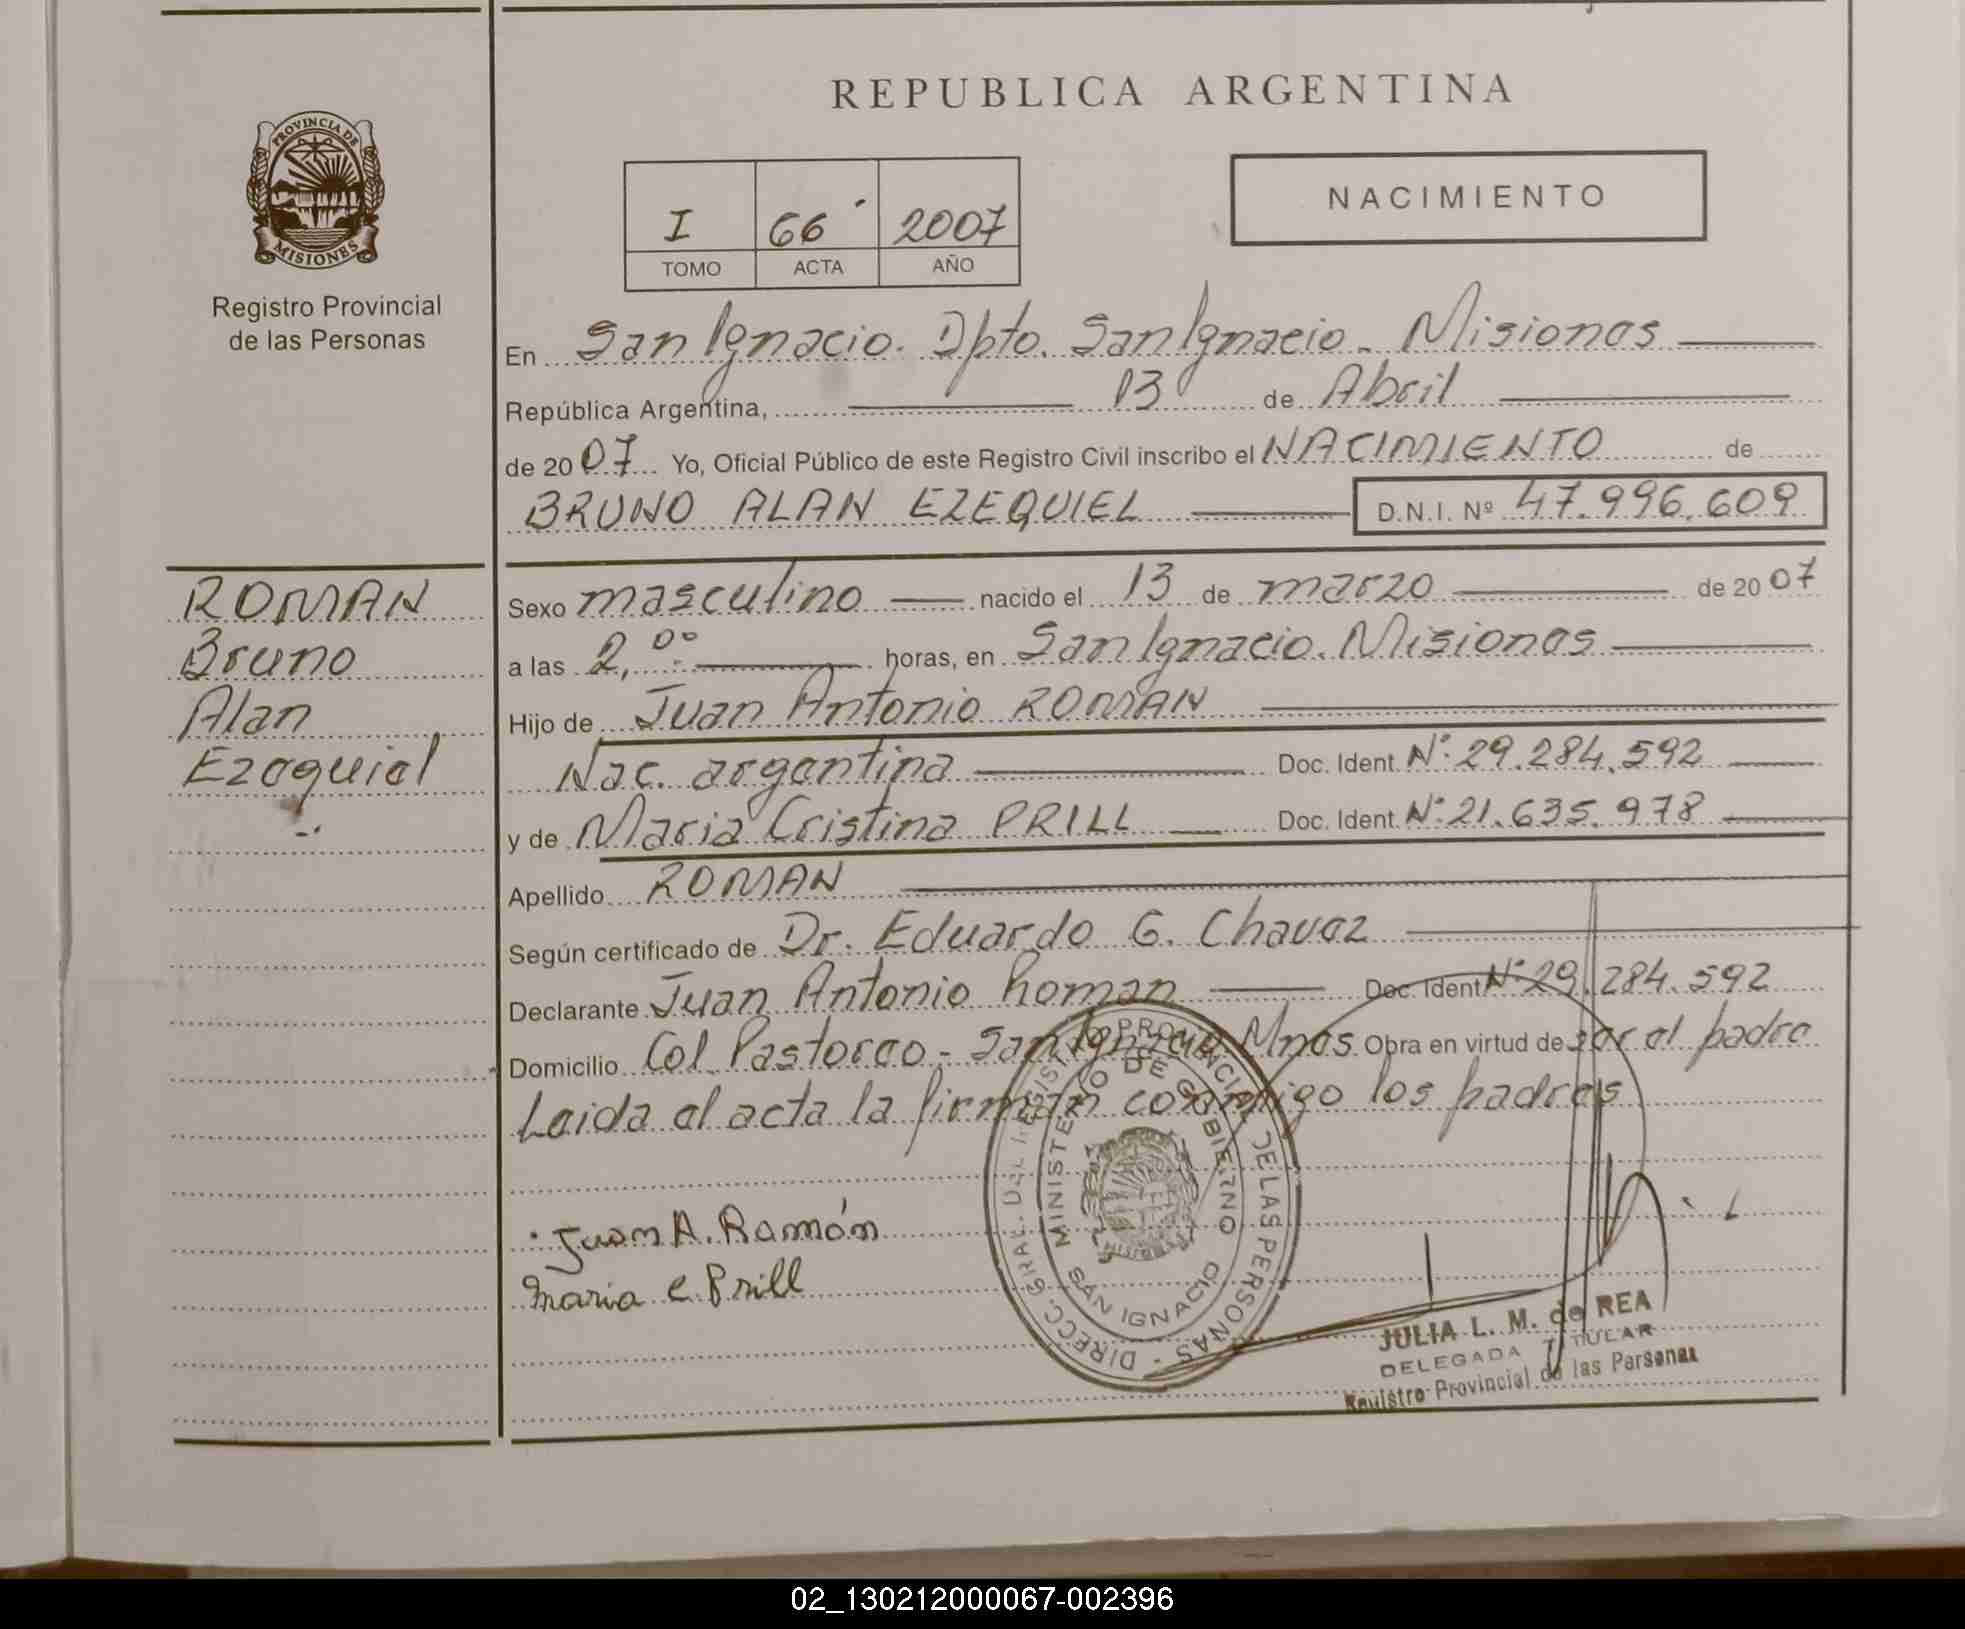 PROVINCIA DE
MISIONES
Registro Provincial
de las Personas
REPUBLICA ARGENTINA
I 66 2007
TOMO ACTA AÑO
NACIMIENTO
En San Ignacio. Dpto. San Ignacio. Misiones
República Argentina, 13 de Abril
de 2007 Yo, Oficial Público de este Registro Civil inscribo el NACIMIENTO de
BRUNO ALAN EZEQUIEL D.N.I. Nº 47.996.609
ROMAN
Bruno
Alan
Ezequiel
Sexo masculino nacido el 13 de marzo de 2007
a las 2,00 horas, en San Ignacio. Misiones
Hijo de Juan Antonio ROMAN
Nac. argentina Doc. Ident. Nº 29.284.592
y de Maria Cristina PRILL Doc. Ident. Nº 21.635.978
Apellido ROMAN
Según certificado de Dr. Eduardo G. Chavez
Declarante Juan Antonio Roman Doc. Ident. Nº 29.284.592
Domicilio Col. Pastoreo - San Ignacio Mnes. Obra en virtud de ser el padre
Leida el acta la firman conmigo los padres
Juan A. Ramón
Maria C. Prill
DIRECC. GRAL. DEL REGISTRO PROVINCIAL DE LAS PERSONAS -
MINISTERIO DE GOBIERNO
MISIONES
SAN IGNACIO
JULIA L. M. de REA
DELEGADA TITULAR
Registro Provincial de las Personas
02_130212000067-002396